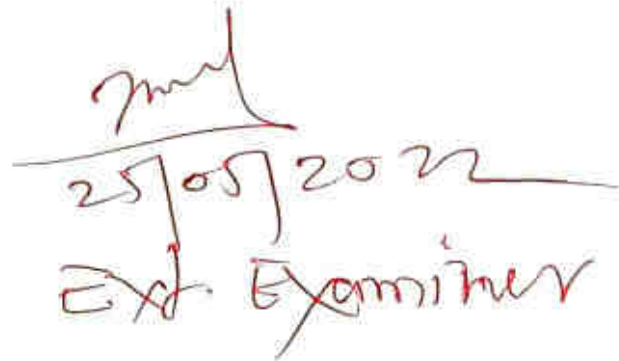 25/05/2022
Ext. Examiner